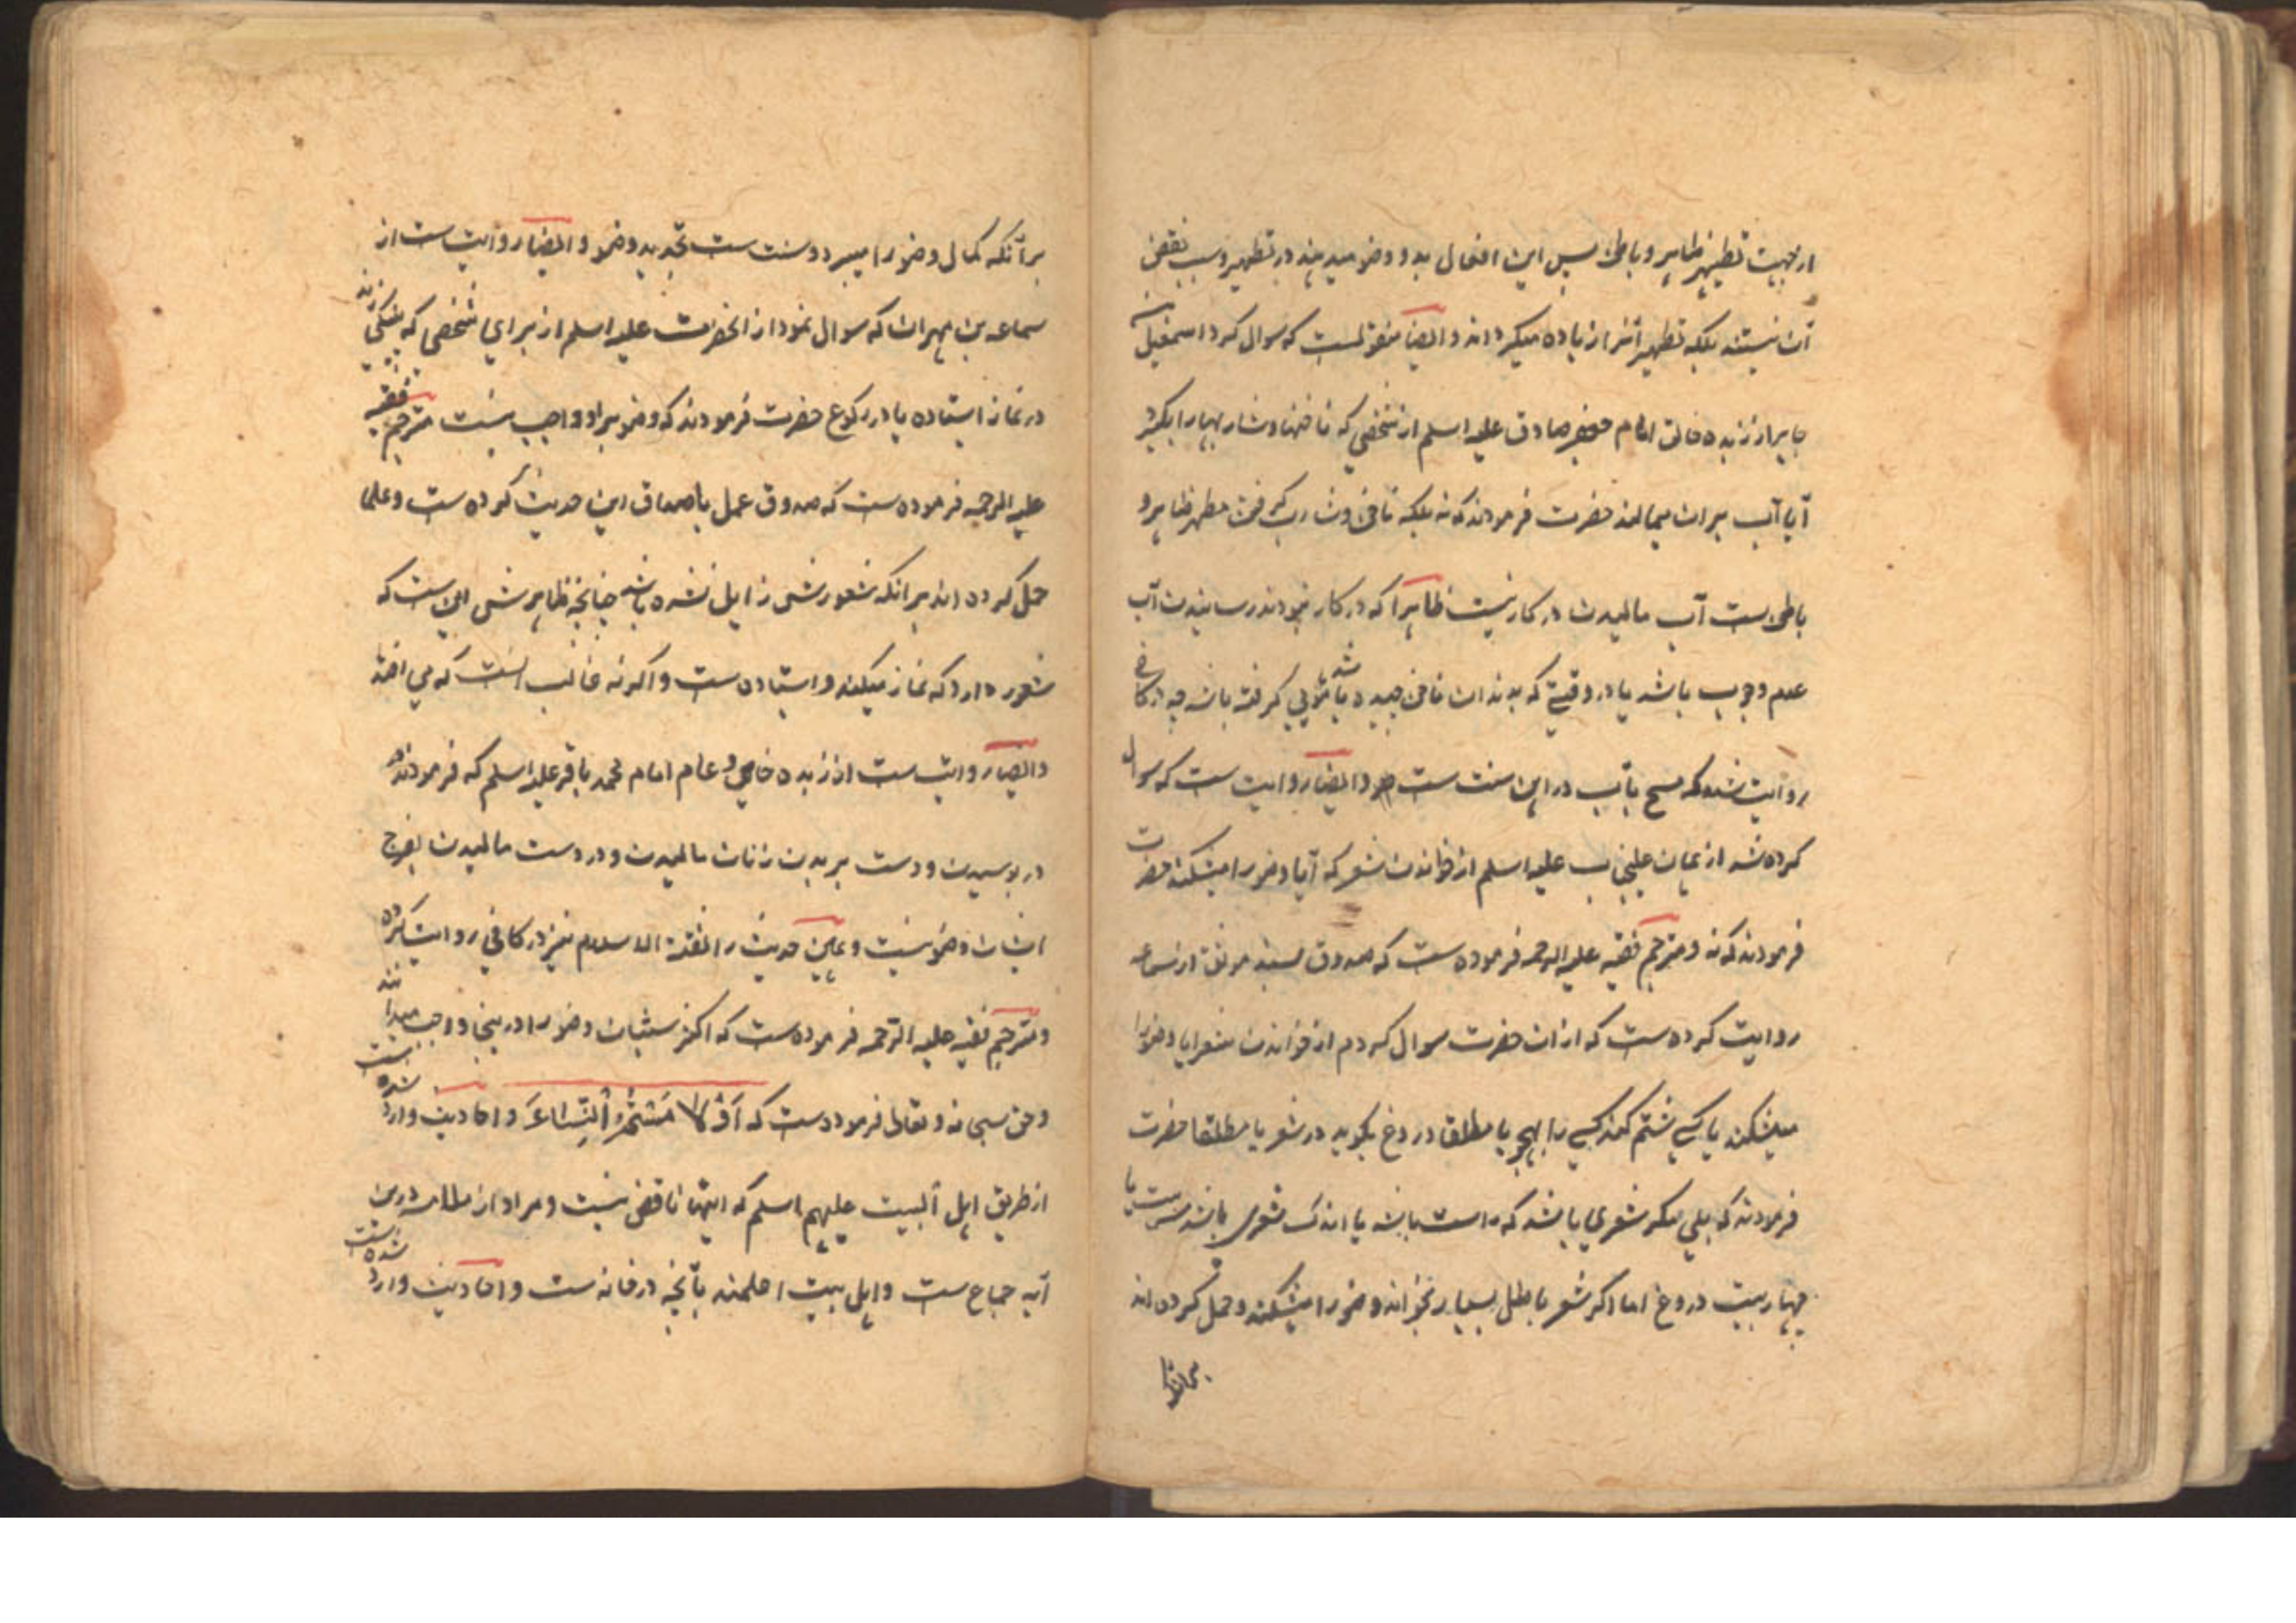 از جهت تطهیر ظاهر و باطن پس این افعال بدو وضو میدهند در تطهیر و سبب نقض
آن نیستند بلکه تطهیر آنرا زیاده میکرداند و ایضا منقولست که سوال کرد اسمعیل بن
جابر از زبده خالق امام جعفر صادق علیه اسلم از شخصی که ناخنها و شاربها را بگیرد
آیا آب بر آن میمالند حضرت فرمودند که نه بلکه ناخن و شارب گرفتن مطهر ظاهر و
باطن ست آب مالیدن در کار نیست ظاهرا که در کار نبودن رسانیدن آب
عدم وجوب باشد یا در وقتی که بدندان ناخن چیده باشد یا موی کرفته باشد چه در کافی
روایت شده که مسح بآب در این سنت ست و ایضا روایت ست که سوال
کرده شد از همان علیجناب علیه اسلم از خواندن شعر که آیا وضو را میشکند حضرت
فرمودند که نه و مترجم فقیه علیه الرحمه فرموده ست که صدوق بسند موثق از سماعه
روایت کرده ست که از ان حضرت سوال کردم از خواندن شعر ایا وضو را
میشکند یا کسی شتم کند کسی را بهجو یا مطلقا دروغ بکوید در شعر یا مطلقا حضرت
فرمودند که بلی مکر شعری باشد که راست باشد یا اندک شعری باشد سه بیت یا
چهار بیت دروغ اما اکر شعر باطل بسیار بخواند وضو را میشکند و حمل کرده اند
برآنکه
برآنکه کمال وضو را میبرد و سنت ست تجدید وضو و ایضا روایت ست از
سماعه بن مهران که سوال نمود از انحضرت علیه اسلم از برای شخصی که پینکی زند
در نماز ایستاده یا در رکوع حضرت فرمودند که وضو بر او واجب نیست مترجم فقیه
علیه الرحمه فرموده ست که صدوق عمل باصداق این حدیث کرده ست و علما
حمل کرده اند بر انکه شعورش زایل نشده باشد چنانچه ظاهرش این ست که
شعور دارد که نماز میکند و ایستاده ست و اکر نه غالب انست که می افتد
و ایضا روایت ست از زبده خاص و عام امام محمد باقر علیه اسلم که فرمودند که
در بوسیدن و دست بر بدن زنان مالیدن و در دست مالیدن بفرج
ایشان وضو نیست و همین حدیث را ثقة الاسلام نیز در کافی روایت کرده
و مترجم فقیه علیه الرحمه فرموده ست که اکثر سنیان وضو را در ینجا واجب میدانند
و حق سبحانه و تعالی فرموده ست که اَوْ لَامَسْتُمُ النِّسَاءَ و احادیث وارد شده ست
از طریق اهل البیت علیهم اسلم که اینها ناقض نیست و مراد از ملامسه درین
آیه جماع ست و اهل بیت اعلمند بآنچه در خانه ست و احادیث وارد شده ست